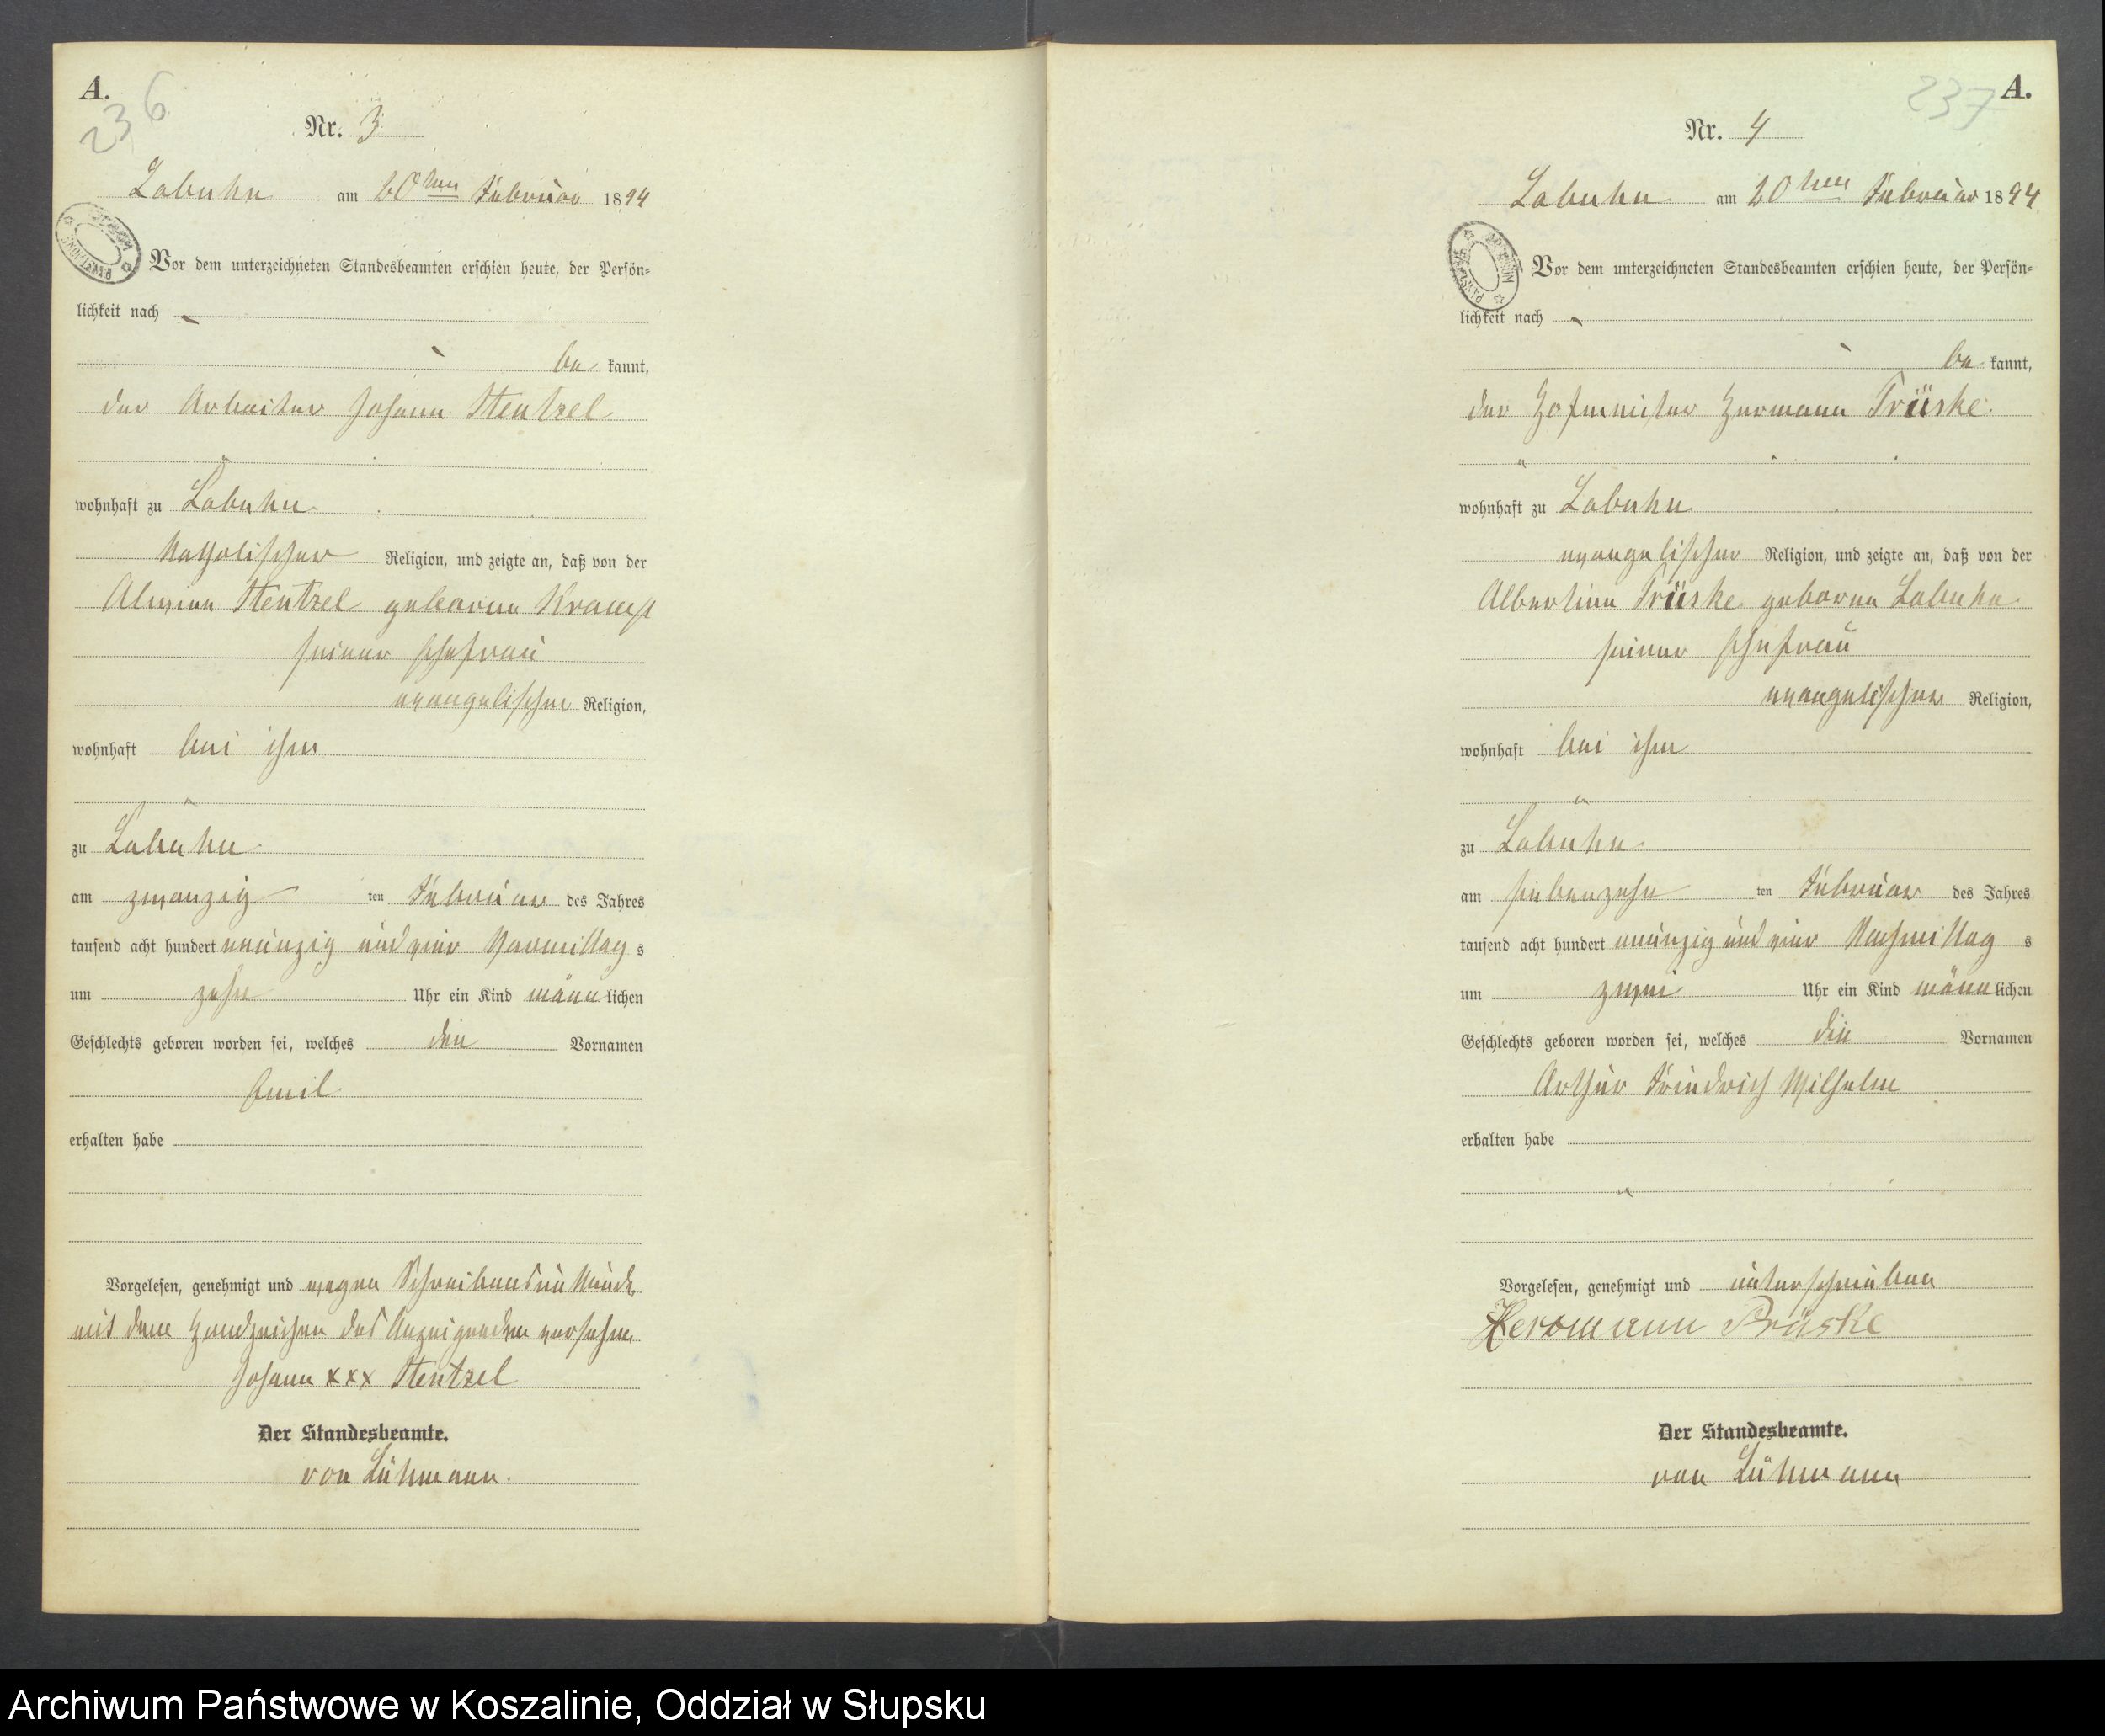 A.
236
Nr. 3
Labuhn am 20ten Februar 1894
Vor dem unterzeichneten Standesbeamten erschien heute, der Persön=
lichkeit nach
be kannt,
der Arbeiter Johann Stentzel
wohnhaft zu Labuhn
katholischer Religion, und zeigte an, daß von der
Stentzel geborene
seiner Ehefrau
evangelischer Religion,
wohnhaft bei ihm
zu Labuhn
am zwanzig ten Februar des Jahres
tausend acht hundert neunzig und vier Vormittag s
um zehn Uhr ein Kind männlichen
Geschlechts geboren worden sei, welches den Vornamen
Emil
erhalten habe
Vorgelesen, genehmigt und wegen Schreibensunkunde
mit dem Handzeichen des Anzeigenden versehen
Johann xxx Stentzel
Der Standesbeamte.
von Lühmann.
237
A.
Nr. 4
Labuhn am 20ten Februar 1894
Vor dem unterzeichneten Standesbeamten erschien heute, der Persön=
lichkeit nach
be kannt,
der Hofmeister Hermann Prüske
wohnhaft zu Labuhn
evangelischer Religion, und zeigte an, daß von der
Albertine Prüske geborene Labuhn
seiner Ehefrau
evangelischer Religion,
wohnhaft bei ihm
zu Labuhn
am siebenzehn ten Februar des Jahres
tausend acht hundert neunzig und vier Nachmittag s
um zwei Uhr ein Kind männlichen
Geschlechts geboren worden sei, welches die Vornamen
Arthur Friedrich Wilhelm
erhalten habe
Vorgelesen, genehmigt und unterschrieben
Hermann Prüske
Der Standesbeamte.
von Lühmann
Archiwum Państwowe w Koszalinie, Oddział w Słupsku